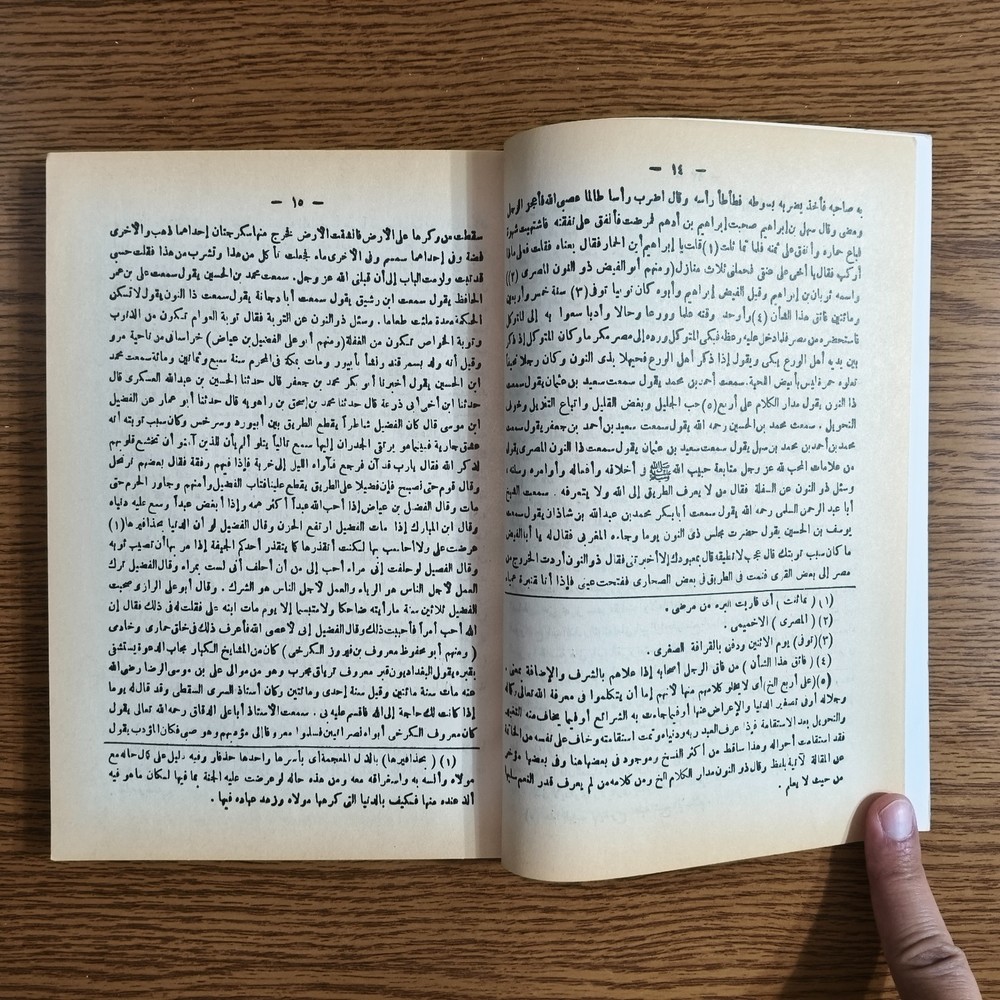 — ١٤ —
به صاحبه فأخذ يضربه بسوطه فطأطأ رأسه وقال اضرب رأسا طالما عصى الله فأعجز الرجل
ومضى وقال سهل بن إبراهيم صحبت إبراهيم بن أدهم فمرضت فأنفق على نفقته فاشتهيت شهوة
فباع حماره وأنفق على ثمنه فلما تماثلت (١) قلت يا إبراهيم أين الحمار فقال بعناه فقلت فعلى ماذا
أركب فقال يا أخى على عنقى فحملنى ثلاث منازل (ومنهم أبو الفيض ذو النون المصرى (٢))
واسمه ثوبان بن إبراهيم وقيل الفيض بن إبراهيم وأبوه كان نوبيا توفى (٣) سنة خمس وأربعين
ومائتين فائق هذا الشأن (٤) وأوحد وقته علما وورعا وحالا وأدبا سعوا به إلى المتوكل
فاستحضره من مصر فلما دخل عليه وعظه فبكى المتوكل ورده إلى مصر مكرما وكان المتوكل إذا ذكر
بين يديه أهل الورع يبكى ويقول إذا ذكر أهل الورع فحيهلا بذى النون وكان رجلا نحيفا
تعلوه حمرة ليس بأبيض اللحية. سمعت أحمد بن محمد يقول سمعت سعيد بن عثمان يقول سمعت
ذا النون يقول مدار الكلام على أربع (٥) حب الجليل وبغض القليل واتباع التنزيل وخوف
التحويل . سمعت محمد بن الحسين رحمه الله يقول سمعت سعيد بن أحمد بن جعفر يقول سمعت
محمد بن أحمد بن محمد بن سهل يقول سمعت سعيد بن عثمان يقول سمعت ذا النون المصرى يقول
من علامات المحب لله عز وجل متابعة حبيب الله ﷺ فى أخلاقه وأفعاله وأوامره وسننه .
وسئل ذو النون عن السفلة فقال من لا يعرف الطريق إلى الله ولا يتعرفه . سمعت الشيخ
أبا عبد الرحمن السلمى رحمه الله يقول سمعت أبا بكر محمد بن عبد الله بن شاذان يقول سمعت
يوسف بن الحسين يقول حضرت مجلس ذى النون يوما وجاءه المغربى فقال له يا أبا الفيض
ما كان سبب توبتك قال عجب لا تطيقه قال بمعبودك إلا أخبرتنى فقال ذو النون أردت الخروج من
مصر إلى بعض القرى فنمت فى الطريق فى بعض الصحارى ففتحت عينى فإذا أنا بقنبرة عمياء
(١) ( تماثلت ) أى قاربت البرء من مرضى .
(٢) ( المصرى ) الاخميمى .
(٣) (توفى) يوم الاثنين ودفن بالقرافة الصغرى .
(٤) ( فائق هذا الشأن ) من فاق الرجل أصحابه إذا علاهم بالشرف والإضافة بمعنى .
(٥) (على أربع الخ) أى لا يخلو كلامهم منها لأنهم إما أن يتكلموا فى معرفة الله تعالى وكماله
وجلاله أو فى تصغير الدنيا والإعراض عنها أو فيما جاءت به الشرائع أو فيما يخاف منه التغيير
والتحويل بعد الاستقامة فإذا عرف العبد ربه ودنياه وتمت استقامته وخاف على نفسه من المخالفة
فقد استقامت أحواله وهذا ساقط من أكثر النسخ وموجود فى بعضها هنا وفى بعضها مؤخر
عن المقالة الآتية بلفظ وقال ذو النون مدار الكلام الخ ومن كلامه من لم يعرف قدر النعم سلبها
من حيث لا يعلم .
— ١٥ —
سقطت من وكرها على الأرض فانشقت الأرض فخرج منها سكرجتان إحداهما ذهب والأخرى
فضة وفى إحداهما سمسم وفى الأخرى ماء فجعلت تأكل من هذا وتشرب من هذا فقلت حسبى
قد تبت ولزمت الباب إلى أن قبلنى الله عز وجل. سمعت محمد بن الحسين يقول سمعت على بن عمر
الحافظ يقول سمعت ابن رشيق يقول سمعت أبا دجانة يقول سمعت ذا النون يقول لا تسكن
الحكمة معدة ملئت طعاما. وسئل ذو النون عن التوبة فقال توبة العوام تكون من الذنوب
وتوبة الخواص تكون من الغفلة (ومنهم أبو على الفضيل بن عياض) خراسانى من ناحية مرو
وقيل أنه ولد بسمرقند ونشأ بأبيورد ومات بمكة فى المحرم سنة سبع وثمانين ومائة سمعت محمد
ابن الحسين يقول أخبرنا أبو بكر محمد بن جعفر قال حدثنا الحسين بن عبدالله العسكرى قال
حدثنا ابن أخى أبى ذرعة قال حدثنا محمد بن إسحق بن راهويه قال حدثنا أبو عمار عن الفضيل
ابن موسى قال كان الفضيل شاطراً يقطع الطريق بين أبيورد وسرخس وكان سبب توبته أنه
عشق جارية فبينما هو يرتقى الجدران إليها سمع تالياً يتلو ألم يأن للذين آمنو أن تخشع قلوبهم
لذكر الله فقال يارب قد آن فرجع فآواه الليل إلى خربة فإذا فيهم رفقة فقال بعضهم نرتحل
وقال قوم حتى نصبح فإن فضيلا على الطريق يقطع علينا فتاب الفضيل وأمنهم وجاور الحرم حتى
مات وقال الفضيل بن عياض إذا أحب الله عبداً أكثر غمه وإذا أبغض عبداً وسع عليه دنياه
وقال ابن المبارك إذا مات الفضيل ارتفع الحزن وقال الفضيل لو أن الدنيا بحذافيرها (١)
عرضت على ولا أحاسب بها لكنت أتقذرها كما يتقذر أحدكم الجيفة إذا مر بها أن تصيب ثوبه
وقال الفضيل لو حلفت إنى مراء أحب إلى من أن أحلف أنى لست بمراء وقال الفضيل ترك
العمل لأجل الناس هو الرياء والعمل لأجل الناس هو الشرك . وقال أبو على الرازى صحبت
الفضيل ثلاثين سنة ما رأيته ضاحكا ولا متبسما إلا يوم مات ابنه على فقلت له فى ذلك فقال إن
الله أحب أمراً فأحببت ذلك وقال الفضيل إنى لأعصى الله فأعرف ذلك فى خلق حمارى وخادمى
( ومنهم أبو محفوظ معروف بن فيروز الكرخى ) كان من المشايخ الكبار مجاب الدعوة يستشفى
بقبره يقول البغداديون قبر معروف ترياق مجرب وهو من موالى على بن موسى الرضا رضى الله
عنه مات سنة مائتين وقيل سنة إحدى ومائتين وكان أستاذ السرى السقطى وقد قال له يوما
إذا كانت لك حاجة إلى الله فاقسم عليه بى . سمعت الأستاذ أبا على الدقاق رحمه الله تعالى يقول
كان معروف الكرخى أبواه نصرانيين فسلموا معروفا إلى مؤدبهم وهو صبى فكان المؤدب يقول
(١) ( بحذافيرها ) بالذال المعجمة أى بأسرها واحدها حذفار وفيه دليل على كمال حاله مع
مولاه وأنسه به واستغراقه معه ومن هذه حاله لو عرضت عليه الجنة بما فيها لكان ما هو فيه
ألذ عنده منها فكيف بالدنيا التى كرهها مولاه وزهد عباده فيها .